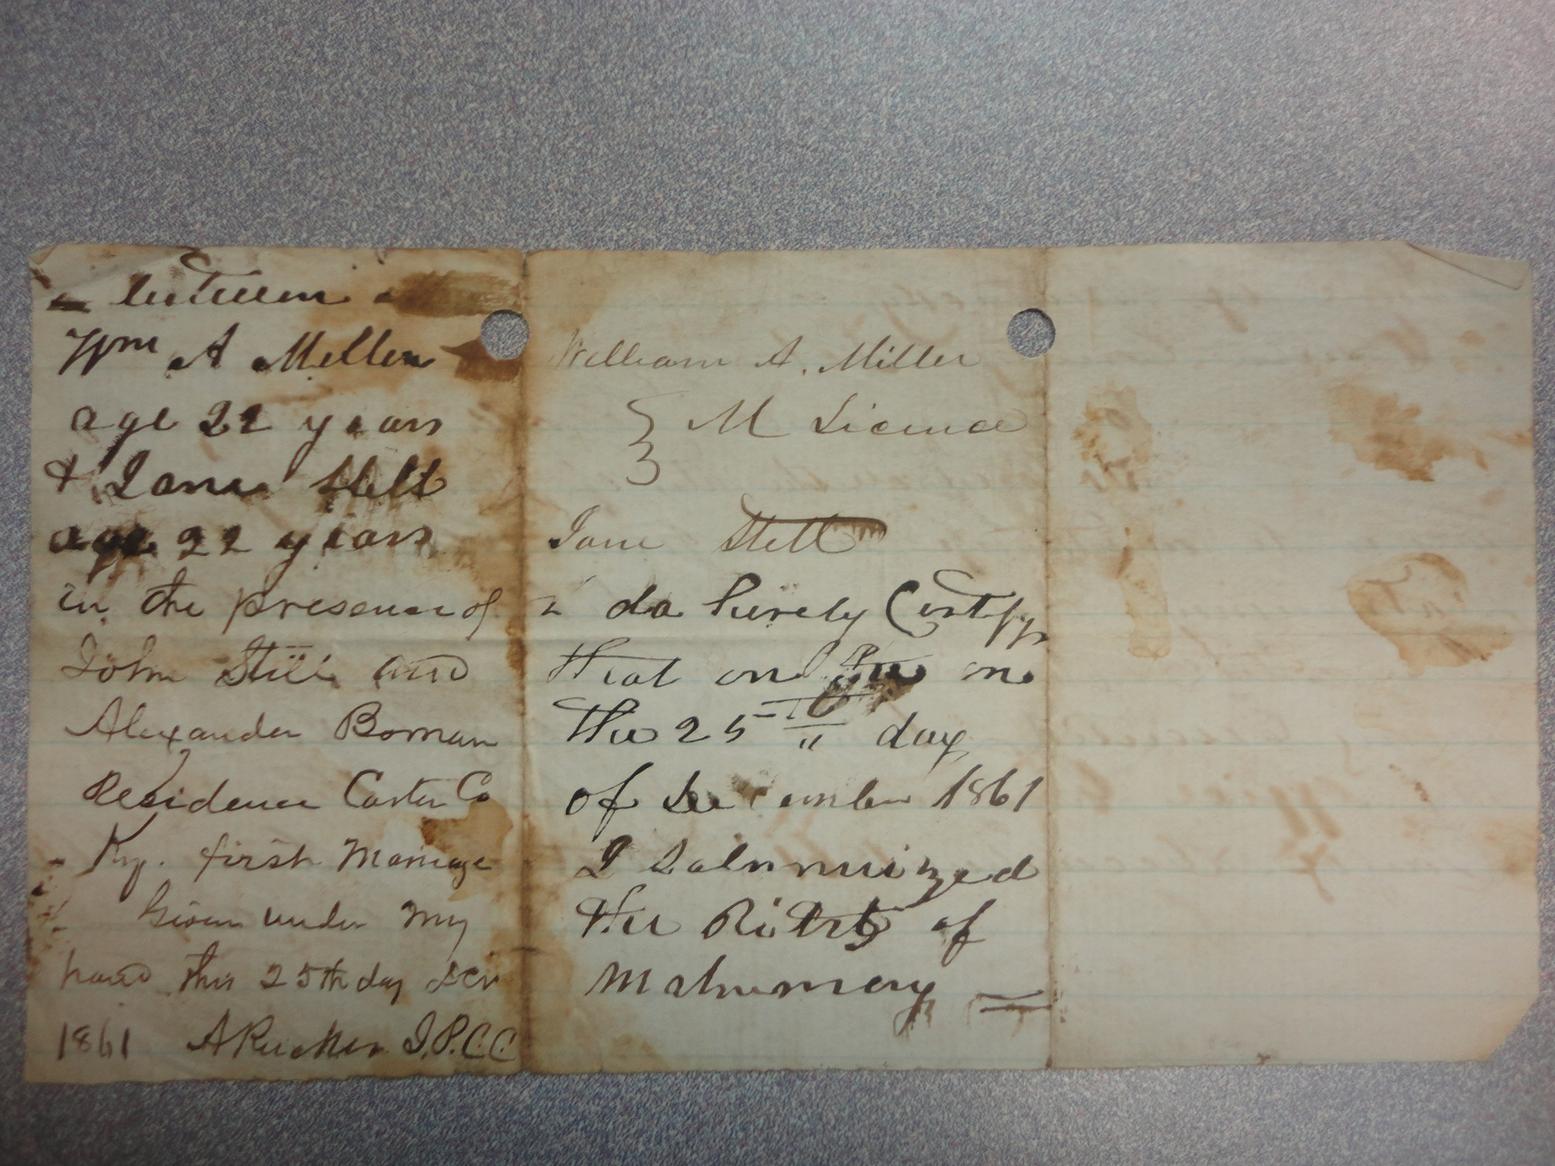 William A. Miller
M Licence
Jane Stilt
I do herely Certify
that on the on
the 25 day
of December 1861
I Solmnnized
the Rites of
Matrimony
between
Wm A Miller
age 22 years
& Jane Stilt
age 22 years
in the presence of
John Still and
Alexander Boman
Residence Carter Co
Ky. first Marriage
Given under My
hand this 25th day Dec
1861 A Rucker J.P.C.C.